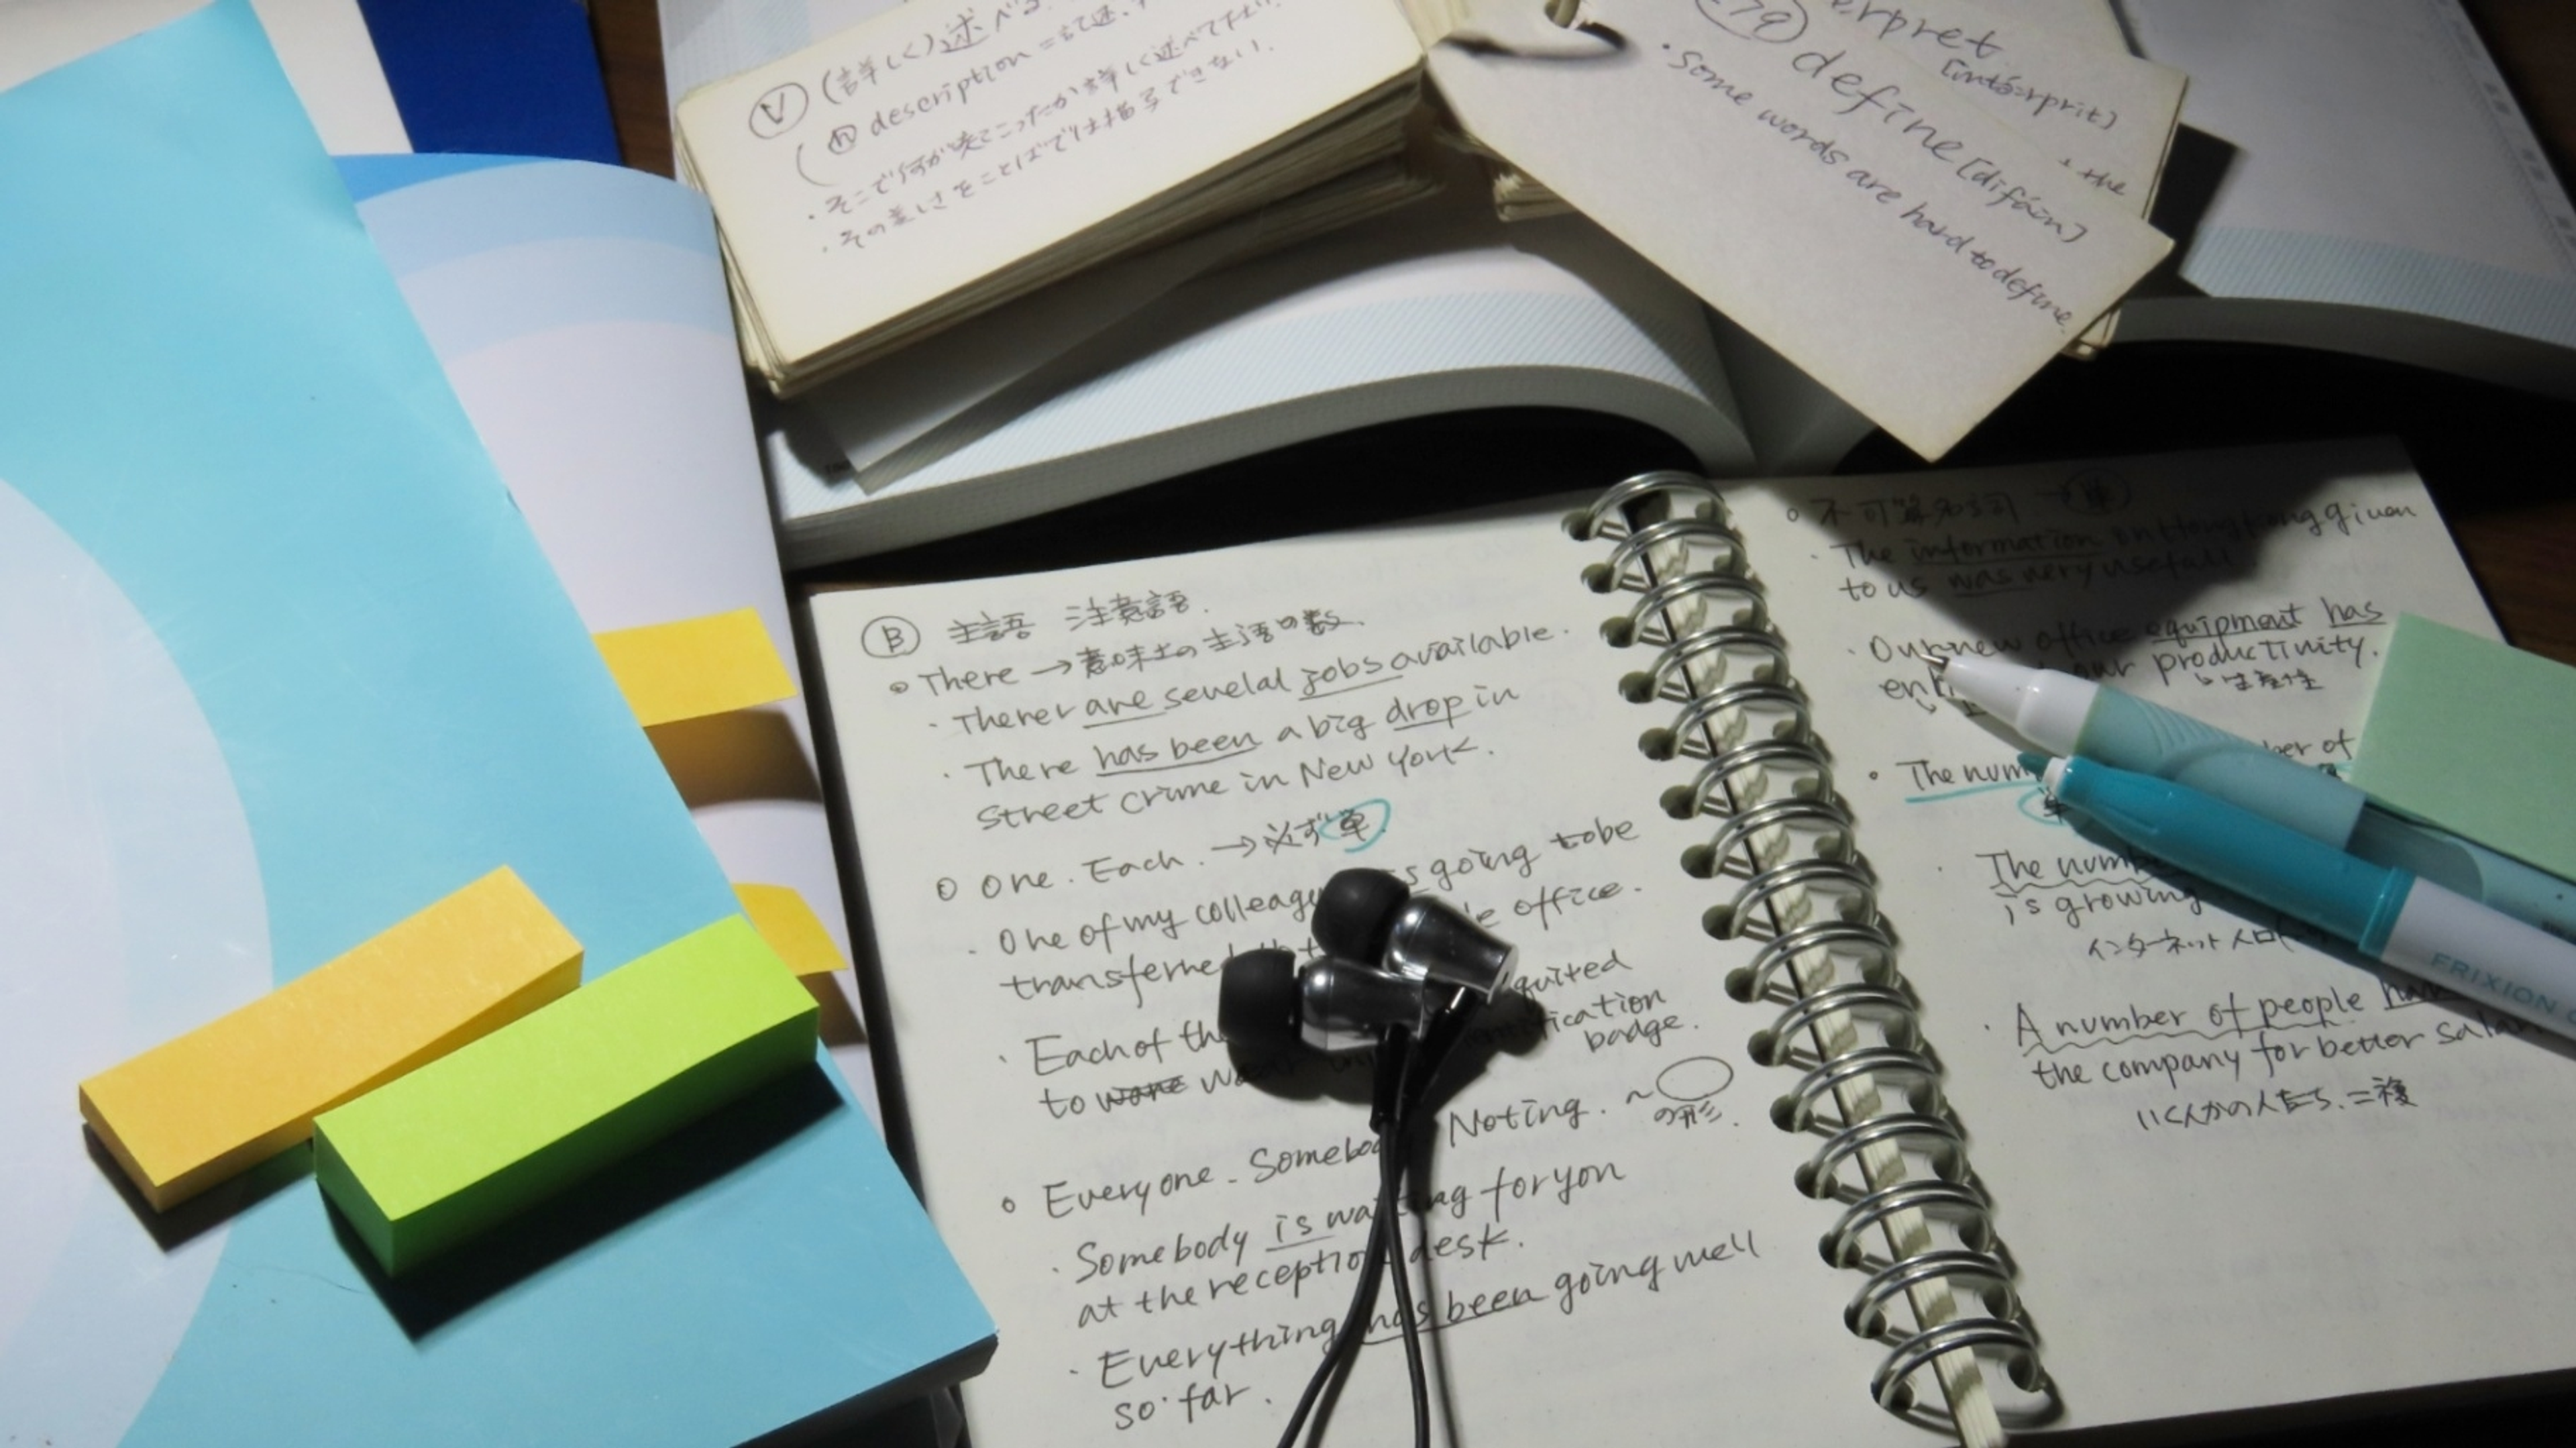 V (詳しく)述べる.
n description = 記述,
・そこで何が起こったか詳しく述べて下さい.
・その美しさをことばでは描写できない.
erpret
[intə́ːrprit]
・the
79 define [difáin]
・Some words are hard to define.
B 主語 注意語.
There → 意味上の主語の数.
・Therer are sevelal jobs available.
・There has been a big drop in
street crime in New York.
One. Each. → 必ず単.
・One of my colleag s going to be
transferred office.
・Each of the quired
to wore wear ification
badge.
Everyone. Somebo Noting. ~
の形.
・Somebody is waiting for yon
at the reception desk.
・Everything has been going well
so far.
不可算名詞 → 単
・The information on Hong Kong given
to us was very usefull
・Our new office equipment has
en our productivity.
↳生産性
・The num ber of
単
・The number
is growing
インターネット人口
・A number of people hav
the company for better salar
いくんかの人たち. = 複
FRIXION